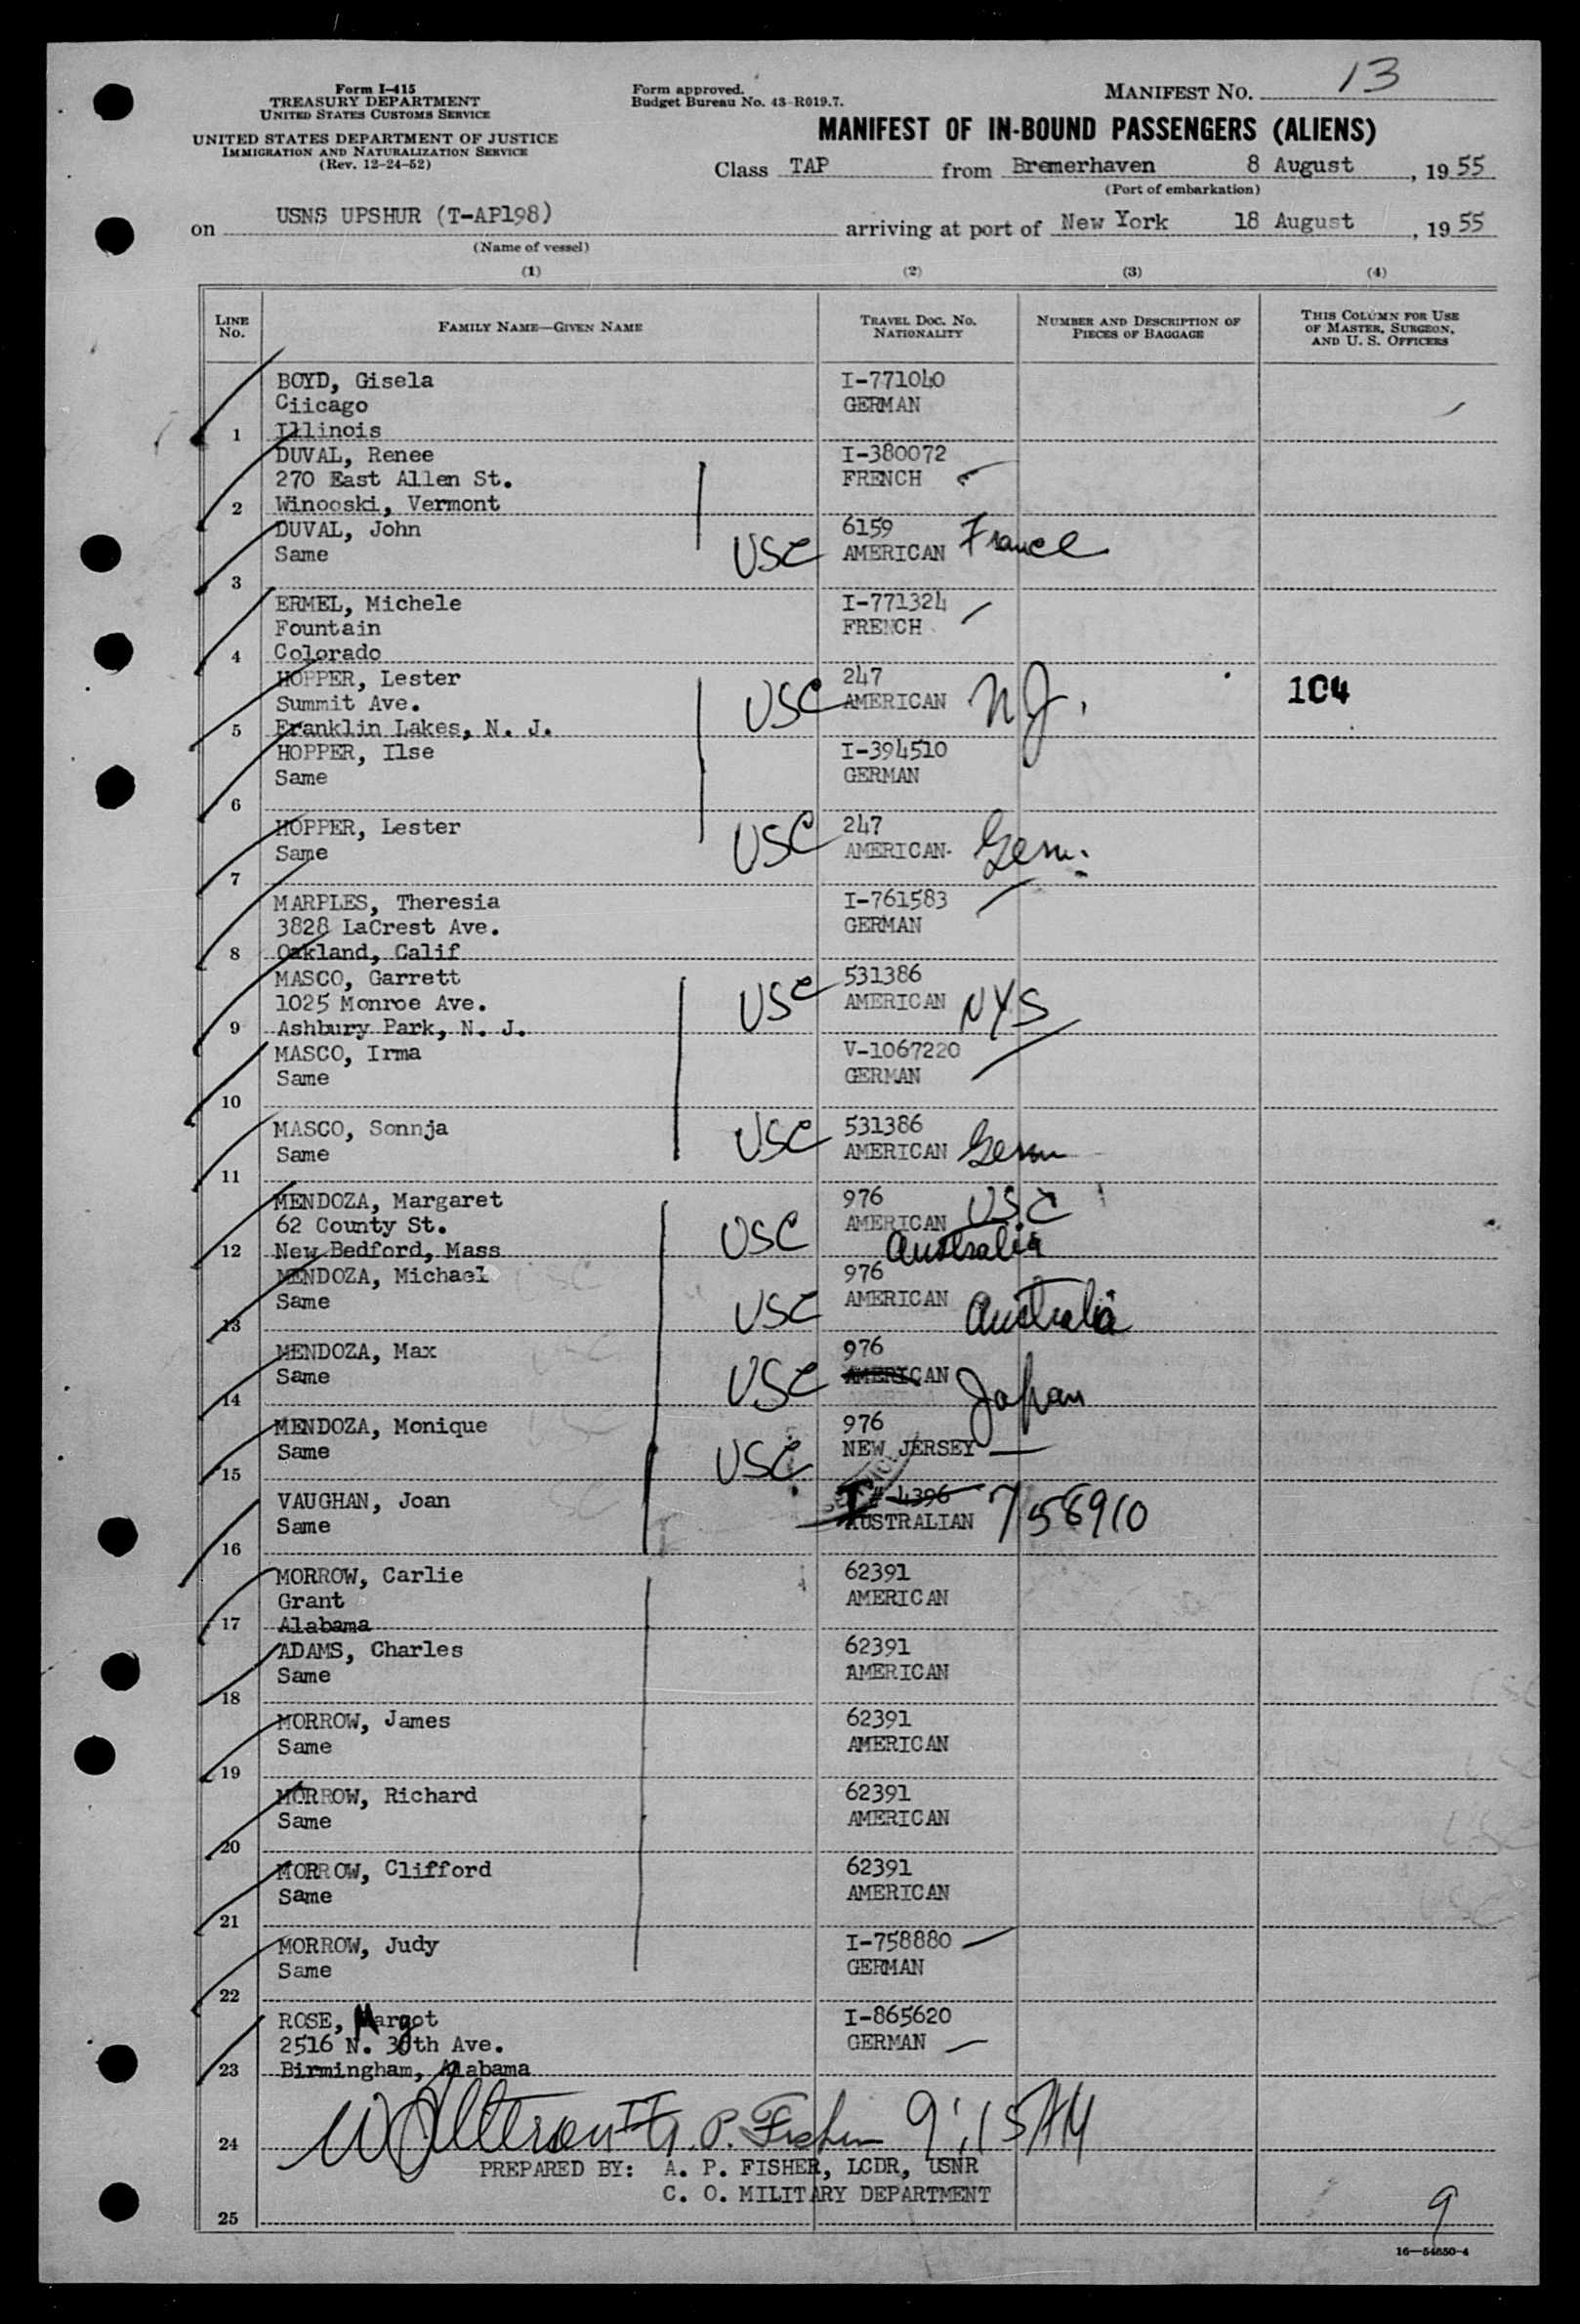 Form I-415
TREASURY DEPARTMENT
UNITED STATES CUSTOMS SERVICE
UNITED STATES DEPARTMENT OF JUSTICE
IMMIGRATION AND NATURALIZATION SERVICE
(Rev. 12-24-52)
Form approved.
Budget Bureau No. 43-R019.7.
MANIFEST NO. 13
MANIFEST OF IN-BOUND PASSENGERS (ALIENS)
Class TAP from Bremerhaven 8 August, 1955
(Port of embarkation)
on USNS UPSHUR (T-AP198) arriving at port of New York 18 August, 1955
(Name of vessel)
(1) (2) (3) (4)
LINE NO. FAMILY NAME—GIVEN NAME TRAVEL DOC. NO. NATIONALITY NUMBER AND DESCRIPTION OF PIECES OF BAGGAGE THIS COLUMN FOR USE OF MASTER, SURGEON, AND U. S. OFFICERS
BOYD, Gisela I-771040
Ciicago GERMAN
1 Illinois
DUVAL, Renee I-380072
270 East Allen St. FRENCH
2 Winooski, Vermont
DUVAL, John 6159
Same USC AMERICAN France
3
ERMEL, Michele I-771324
Fountain FRENCH
4 Colorado
HOPPER, Lester 247
Summit Ave. USC AMERICAN N.J. 104
5 Franklin Lakes, N. J.
HOPPER, Ilse I-394510
Same GERMAN
6
HOPPER, Lester 247
Same USC AMERICAN Germ.
7
MARPLES, Theresia I-761583
3828 LaCrest Ave. GERMAN
8 Oakland, Calif
MASCO, Garrett 531386
1025 Monroe Ave. USC AMERICAN NYS
9 Ashbury Park, N. J.
MASCO, Irma V-1067220
Same GERMAN
10
MASCO, Sonnja 531386
Same USC AMERICAN Germ
11
MENDOZA, Margaret 976
62 County St. USC AMERICAN USC
12 New Bedford, Mass Australia
MENDOZA, Michael 976
Same USC AMERICAN Australia
13
MENDOZA, Max 976
Same USC AMERICAN Japan
14
MENDOZA, Monique 976
Same USC NEW JERSEY
15
VAUGHAN, Joan I# 4396
Same AUSTRALIAN 758910
16
MORROW, Carlie 62391
Grant AMERICAN
17 Alabama
ADAMS, Charles 62391
Same AMERICAN
18
MORROW, James 62391
Same AMERICAN
19
MORROW, Richard 62391
Same AMERICAN
20
MORROW, Clifford 62391
Same AMERICAN
21
MORROW, Judy I-758880
Same GERMAN
22
ROSE, Margot I-865620
2516 N. 30th Ave. GERMAN
23 Birmingham, Alabama
24 A. P. Fisher 9:15 AM
PREPARED BY: A. P. FISHER, LCDR, USNR
C. O. MILITARY DEPARTMENT
25 9
16—54650-4